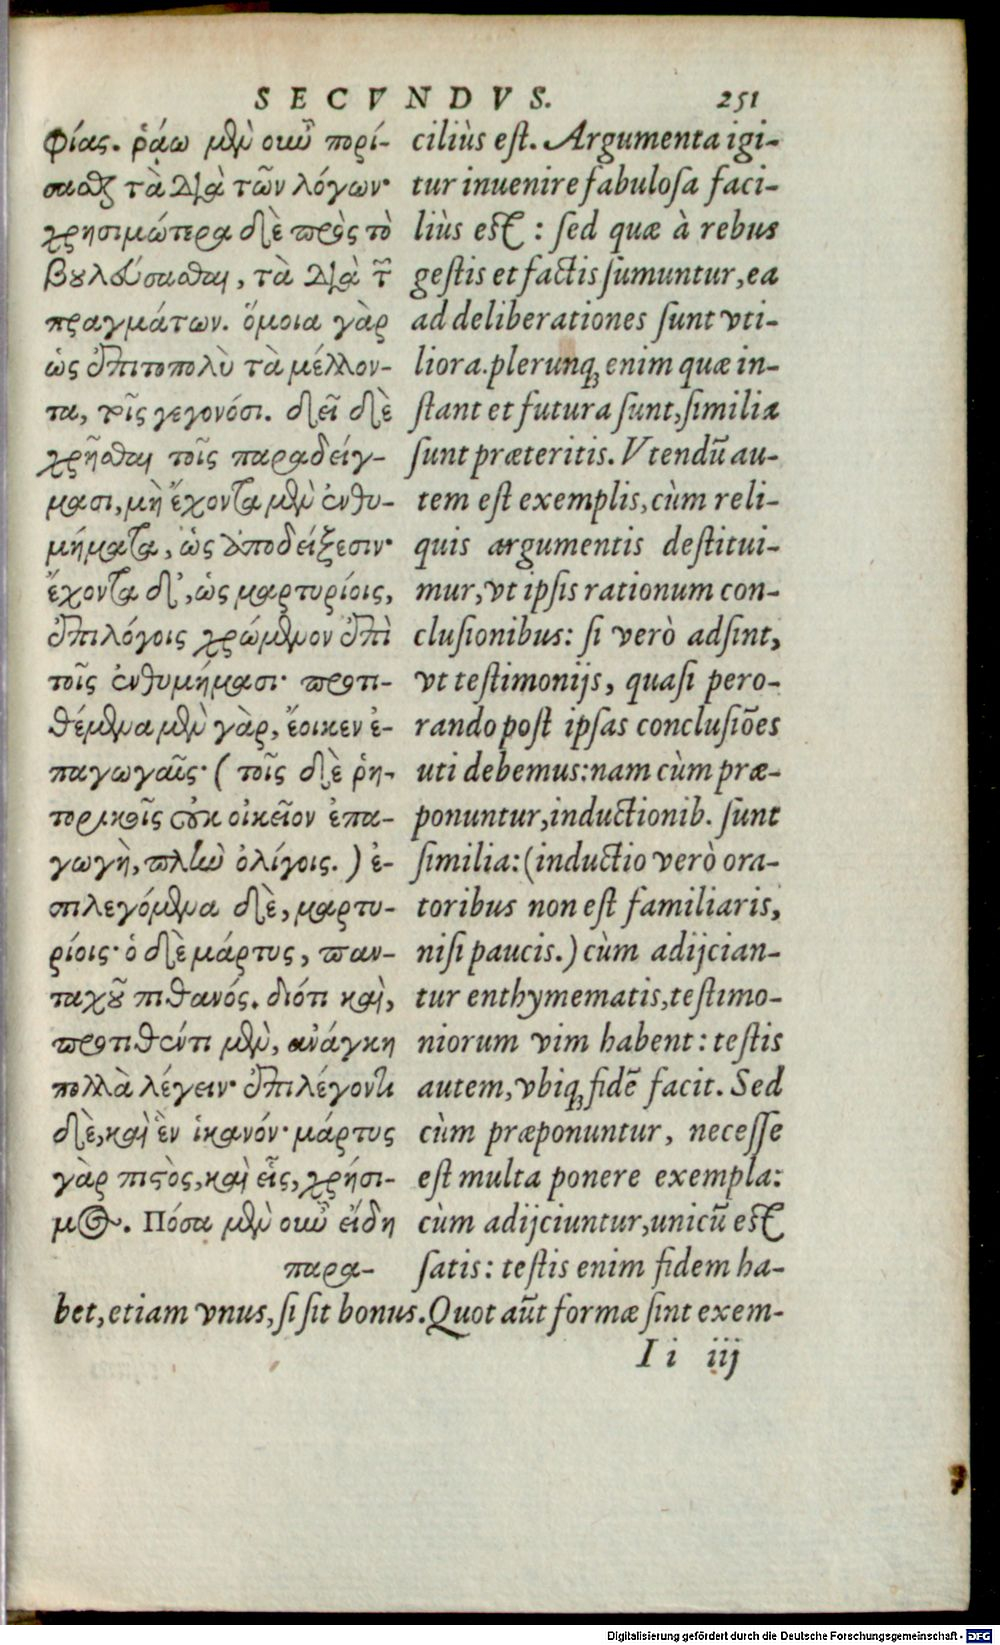 SECVNDVS. 251
φίας. ῥάω μὲν οὖν πορί-
σασθαι τὰ διὰ τῶν λόγων·
χρησιμώτερα δὲ πρὸς τὸ
βουλεύσασθαι, τὰ διὰ τῶν
πραγμάτων. ὅμοια γὰρ
ὡς ἐπιτοπολὺ τὰ μέλλον-
τα, τοῖς γεγονόσι. δεῖ δὲ
χρῆσθαι τοῖς παραδείγ-
μασι, μὴ ἔχοντα μὲν ἐνθυ-
μήματα, ὡς ἀποδείξεσιν·
ἔχοντα δ', ὡς μαρτυρίοις,
ἐπιλόγοις χρώμενον ἐπὶ
τοῖς ἐνθυμήμασι· προτι-
θέμενα μὲν γὰρ, ἔοικεν ἐ-
παγωγαῖς· (τοῖς δὲ ῥη-
τορικοῖς οὐκ οἰκεῖον ἐπα-
γωγὴ, πλὴν ὀλίγοις.) ἐ-
πιλεγόμενα δὲ, μαρτυ-
ρίοις· ὁ δὲ μάρτυς, παν-
ταχοῦ πιθανός. διότι καὶ,
προτιθέντι μὲν, ἀνάγκη
πολλὰ λέγειν· ἐπιλέγοντι
δὲ, καὶ ἓν ἱκανόν· μάρτυς
γὰρ πιστὸς, καὶ εἷς, χρήσι-
μος. Πόσα μὲν οὖν εἴδη
παρα-
ciliùs est. Argumenta igi-
tur inuenire fabulosa faci-
liùs est : sed quæ à rebus
gestis et factis sumuntur, ea
ad deliberationes sunt vti-
liora. plerunq; enim quæ in-
stant et futura sunt, similia
sunt præteritis. Vtendū au-
tem est exemplis, cùm reli-
quis argumentis destitui-
mur, vt ipsis rationum con-
clusionibus: si verò adsint,
vt testimonijs, quasi pero-
rando post ipsas conclusiōes
uti debemus: nam cùm præ-
ponuntur, inductionib. sunt
similia: (inductio verò ora-
toribus non est familiaris,
nisi paucis.) cùm adijcian-
tur enthymematis, testimo-
niorum vim habent: testis
autem, vbiq; fidē facit. Sed
cùm præponuntur, necesse
est multa ponere exempla:
cùm adijciuntur, unicū est
satis: testis enim fidem ha-
bet, etiam vnus, si sit bonus. Quot aūt formæ sint exem-
I i iij
Digitalisierung gefördert durch die Deutsche Forschungsgemeinschaft - DFG